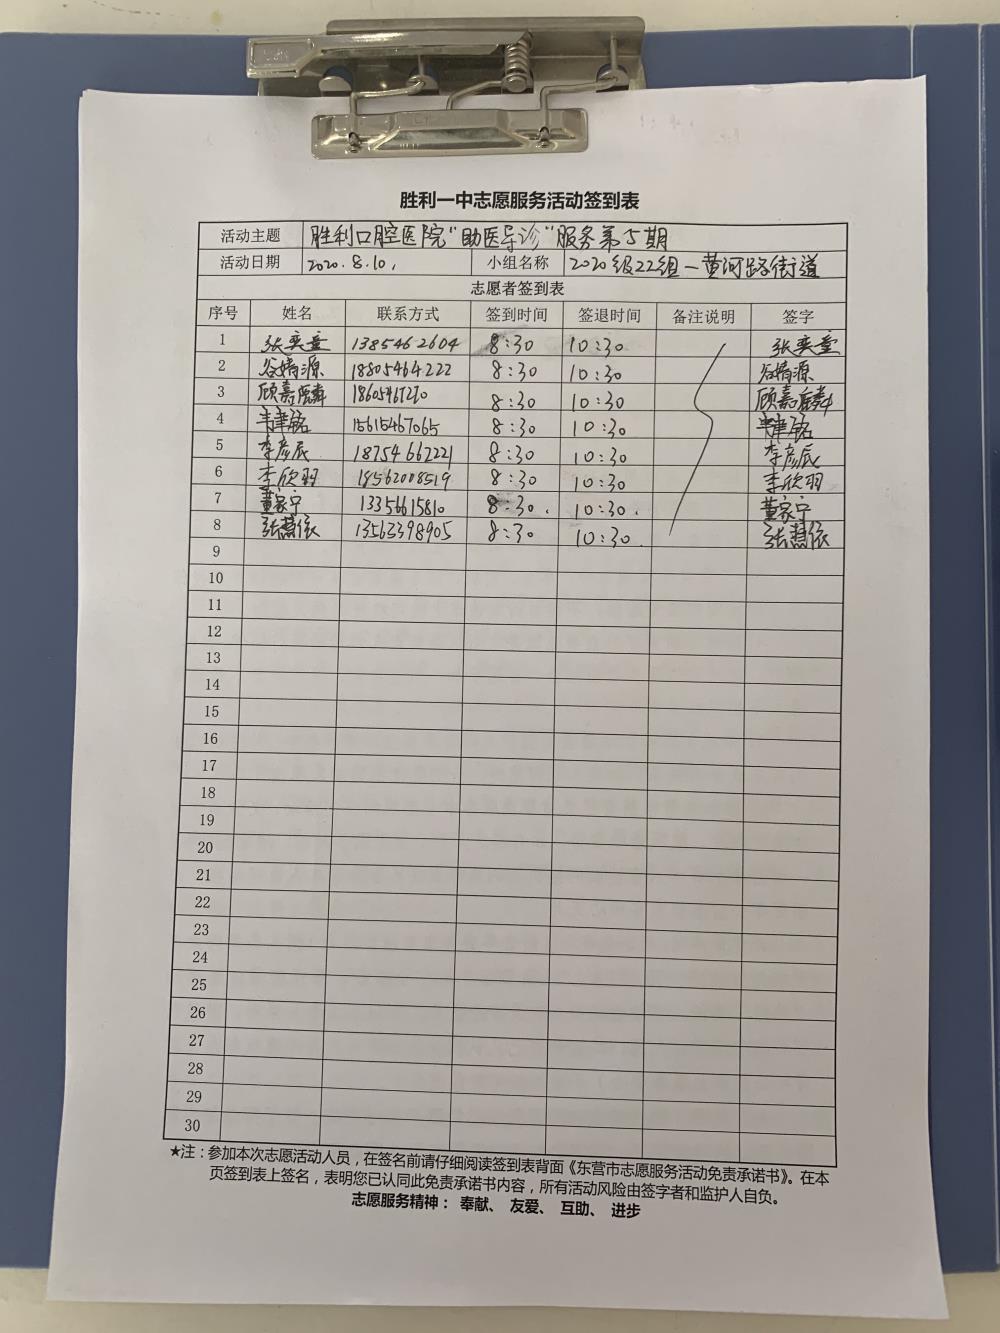 胜利一中志愿服务活动签到表
活动主题 胜利口腔医院"助医导诊"服务第5期
活动日期 2020.8.10. 小组名称 2020级22组—黄河路街道
志愿者签到表
序号 姓名 联系方式 签到时间 签退时间 备注说明 签字
1 张奕萱 1385462604 8:30 10:30 张奕萱
2 谷婧源 18805464222 8:30 10:30 谷婧源
3 顾嘉麟 8:30 10:30 顾嘉麟
4 15615467065 8:30 10:30
5 李彦辰 18754662221 8:30 10:30 李彦辰
6 李欣羽 18562008519 8:30 10:30 李欣羽
7 董家宁 13356615810 8:30. 10:30. 董家宁
8 张慧依 13563398905 8:30 10:30. 张慧依
9
10
11
12
13
14
15
16
17
18
19
20
21
22
23
24
25
26
27
28
29
30
★注：参加本次志愿活动人员，在签名前请仔细阅读签到表背面《东营市志愿服务活动免责承诺书》。在本
页签到表上签名，表明您已认同此免责承诺书内容，所有活动风险由签字者和监护人自负。
志愿服务精神： 奉献、 友爱、 互助、 进步